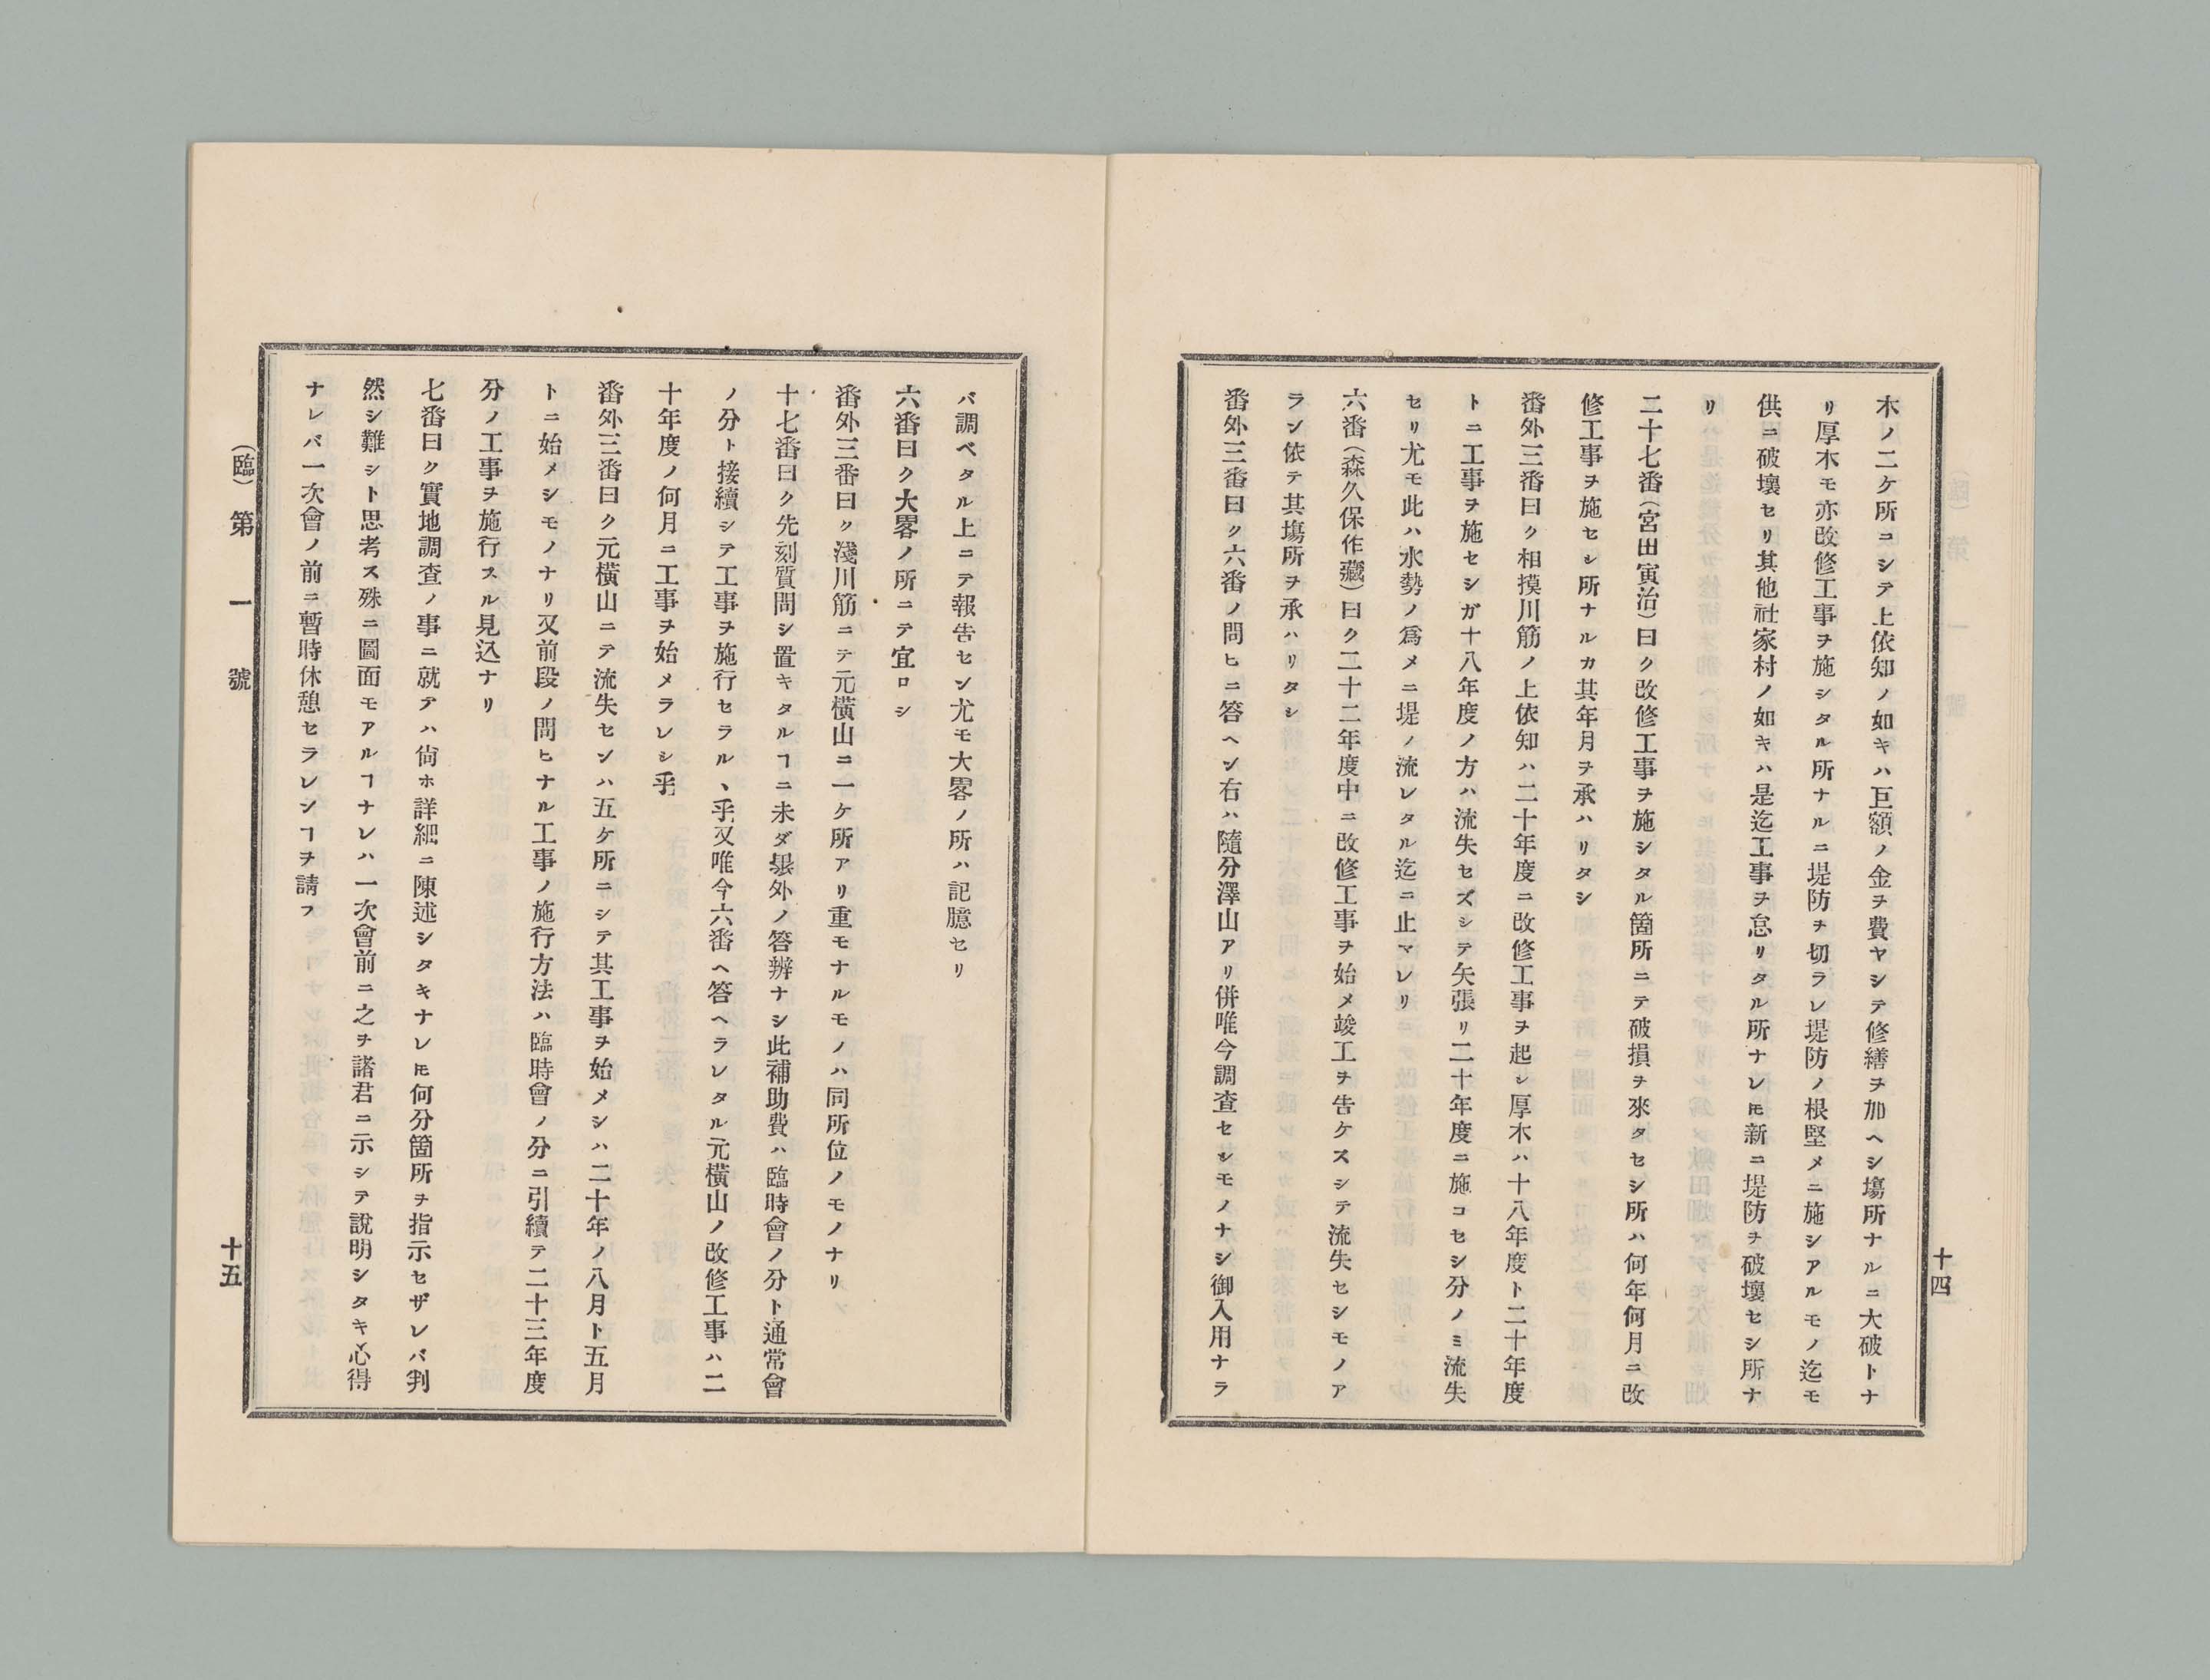 木ノ二ケ所コシテ上依知ノ如キハ巨額ノ金ヲ費ヤシテ修繕ヲ加ヘシ塲所ナルニ大破トナ
リ厚木モ亦改修工事ヲ施シタル所ナルニ堤防ヲ切ラレ堤防ノ根堅メニ施シアルモノ迄モ
供ニ破壞セリ其他社家村ノ如キハ是迄工事ヲ怠リタル所ナレ𪜈新ニ堤防ヲ破壞セシ所ナ
リ
二十七番(宮田寅治)曰ク改修工事ヲ施シタル箇所ニテ破損ヲ來タセシ所ハ何年何月ニ改
修工事ヲ施セシ所ナルカ其年月ヲ承ハリタシ
番外三番曰ク相摸川筋ノ上依知ハ二十年度ニ改修工事ヲ起シ厚木ハ十八年度ト二十年度
トニ工事ヲ施セシガ十八年度ノ方ハ流失セズシテ矢張リ二十年度ニ施コセシ分ノミ流失
セリ尤モ此ハ水勢ノ爲メニ堤ノ流レタル迄ニ止マレリ
六番(森久保作藏)曰ク二十二年度中ニ改修工事ヲ始メ竣工ヲ告ケスシテ流失セシモノア
ラン依テ其塲所ヲ承ハリタシ
番外三番曰ク六番ノ問ヒニ答ヘン右ハ隨分澤山アリ併唯今調査セシモノナシ御入用ナラ
十四
バ調ベタル上ニテ報告セン尤モ大畧ノ所ハ記臆セリ
六番曰ク大畧ノ所ニテ宜ロシ
番外三番曰ク淺川筋ニテ元橫山ニ一ケ所アリ重モナルモノハ同所位ノモノナリ
十七番曰ク先刻質問シ置キタルヿニ未ダ番外ノ答辨ナシ此補助費ハ臨時會ノ分ト通常會
ノ分ト接續シテ工事ヲ施行セラルヽ乎又唯今六番ヘ答ヘラレタル元橫山ノ改修工事ハ二
十年度ノ何月ニ工事ヲ始メラレシ乎
番外三番曰ク元橫山ニテ流失センハ五ケ所ニシテ其工事ヲ始メシハ二十年ノ八月ト五月
トニ始メシモノナリ又前段ノ問ヒナル工事ノ施行方法ハ臨時會ノ分ニ引續テ二十三年度
分ノ工事ヲ施行スル見込ナリ
七番曰ク實地調查ノ事ニ就テハ尙ホ詳細ニ陳述シタキナレ𪜈何分箇所ヲ指示セザレバ判
然シ難シト思考ス殊ニ圖面モアルヿナレハ一次會前ニ之ヲ諸君ニ示シテ說明シタキ心得
ナレバ一次會ノ前ニ暫時休憩セラレンヿヲ請フ
(臨)第一號
十五